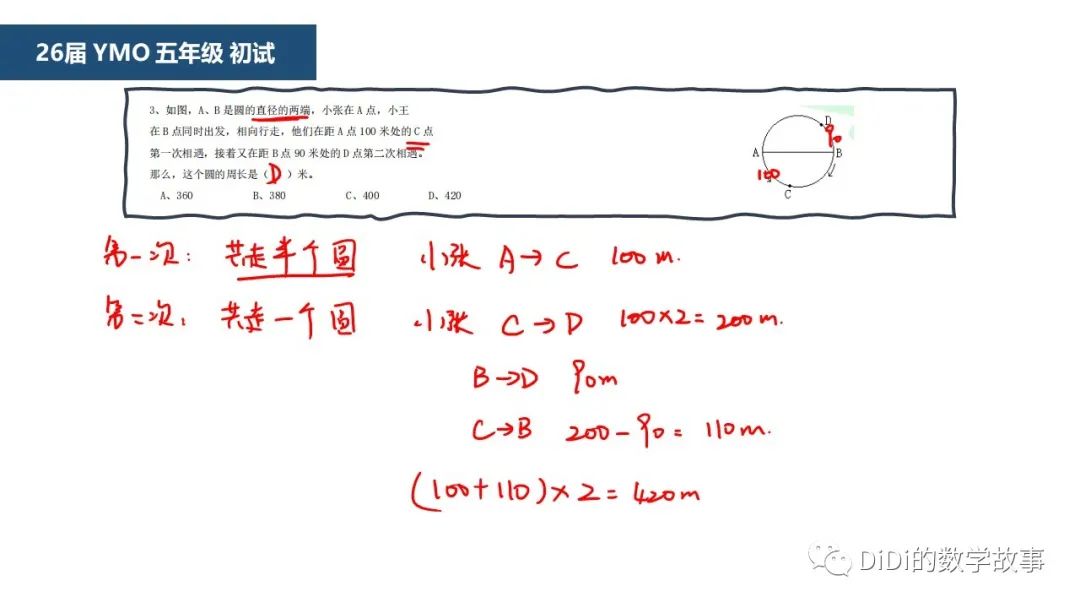 26届 YMO 五年级 初试
3、如图，A、B 是圆的直径的两端，小张在 A 点，小王
在 B 点同时出发，相向行走，他们在距 A 点 100 米处的 C 点
第一次相遇，接着又在距 B 点 90 米处的 D 点第二次相遇。
那么，这个圆的周长是（ D ）米。
A、360 B、380 C、400 D、420
D
90
A B
100
C
第一次： 共走半个圆 小张 A→C 100m.
第二次： 共走一个圆 小张 C→D 100×2=200m.
B→D 90m
C→B 200-90= 110m.
(100+110)×2=420m
DiDi的数学故事